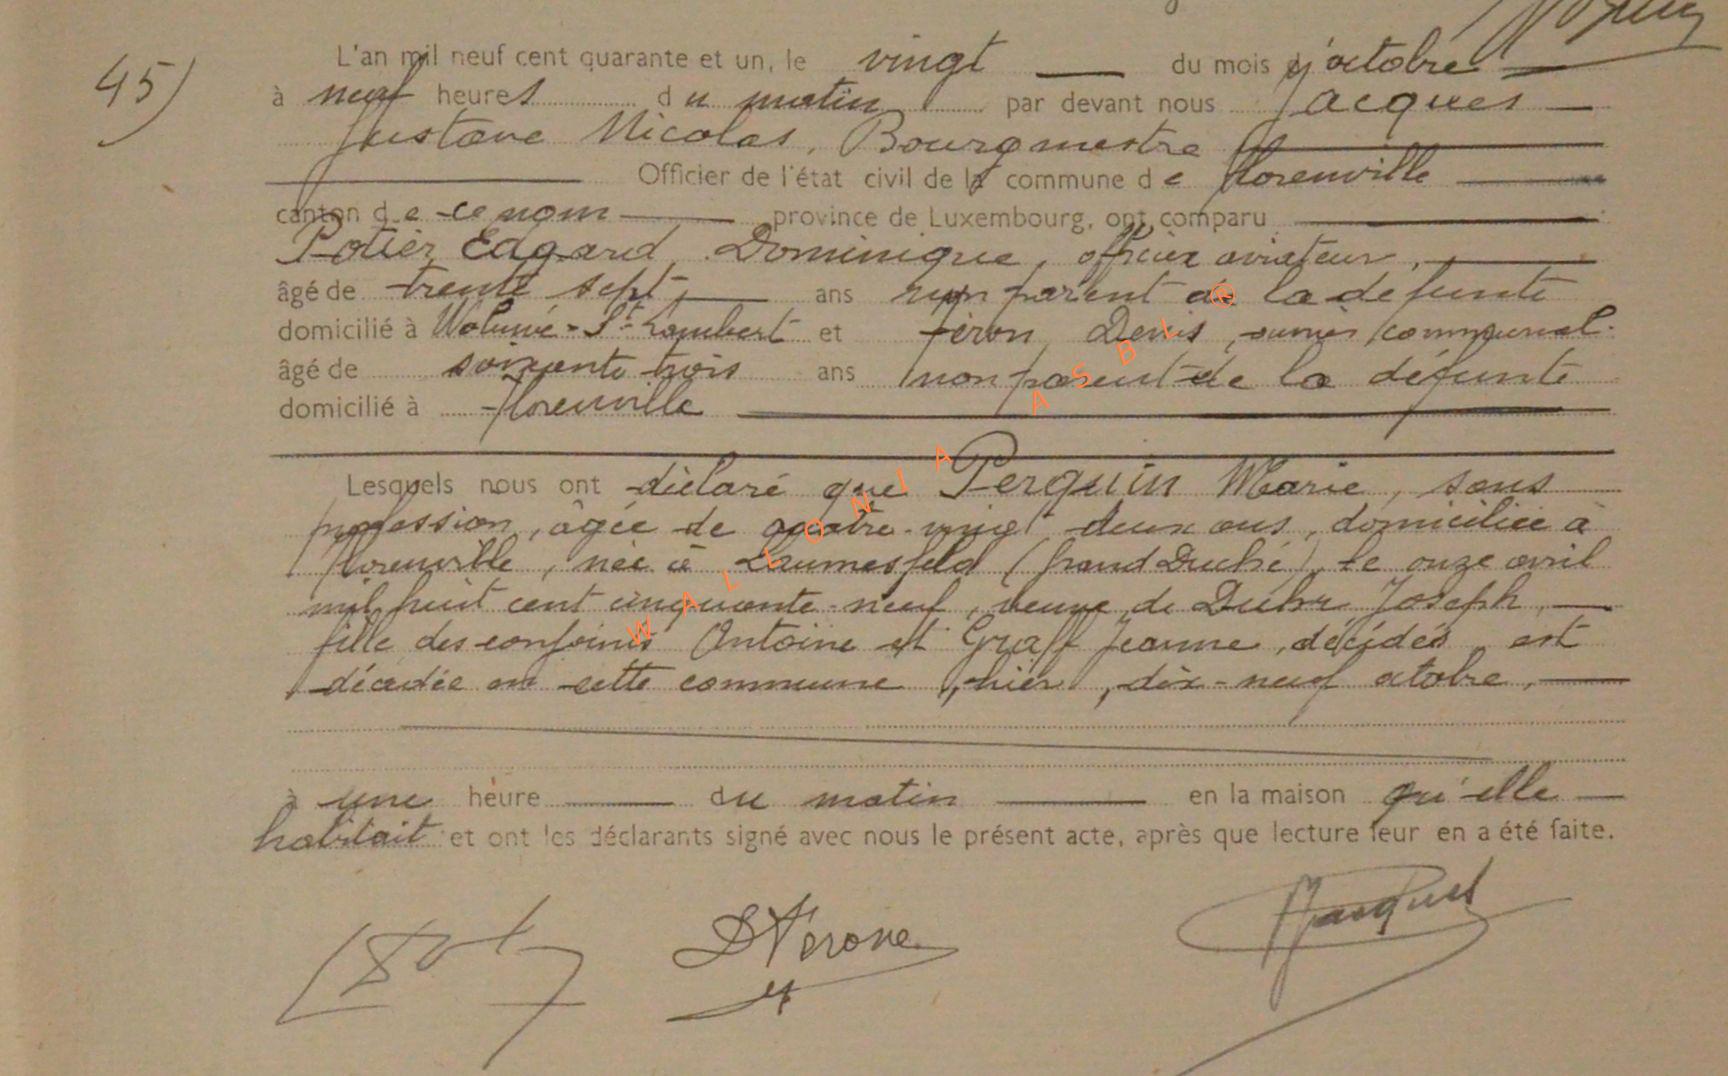 45)
L'an mil neuf cent quarante et un, le vingt du mois d'octobre
à neuf heures du matin par devant nous Jacques
Gustave Nicolas, Bourgmestre
Officier de l'état civil de la commune de Florenville
canton de ce nom province de Luxembourg, ont comparu
Potier, Edgard, Dominique, officier aviateur,
âgé de trente sept ans non parent de la défunte
domicilié à Woluwé-St Lambert et Féron, Denis, ouvrier communal
âgé de soixante trois ans non parent de la défunte
domicilié à Florenville
Lesquels nous ont déclaré que Perquin Marie, sans
profession, âgée de quatre-vingt deux ans, domiciliée à
Florenville, née à Laumesfeld (Grand Duché), le onze avril
mil huit cent cinquante-neuf, veuve de Duhr Joseph,
fille des conjoints Antoine et Graff Jeanne, décédés, est
décédée en cette commune, hier, dix-neuf octobre,
à une heure du matin en la maison qu'elle
habitait et ont les déclarants signé avec nous le présent acte, après que lecture leur en a été faite.
D Férone
Jacques
WALLONIA ASBL ©